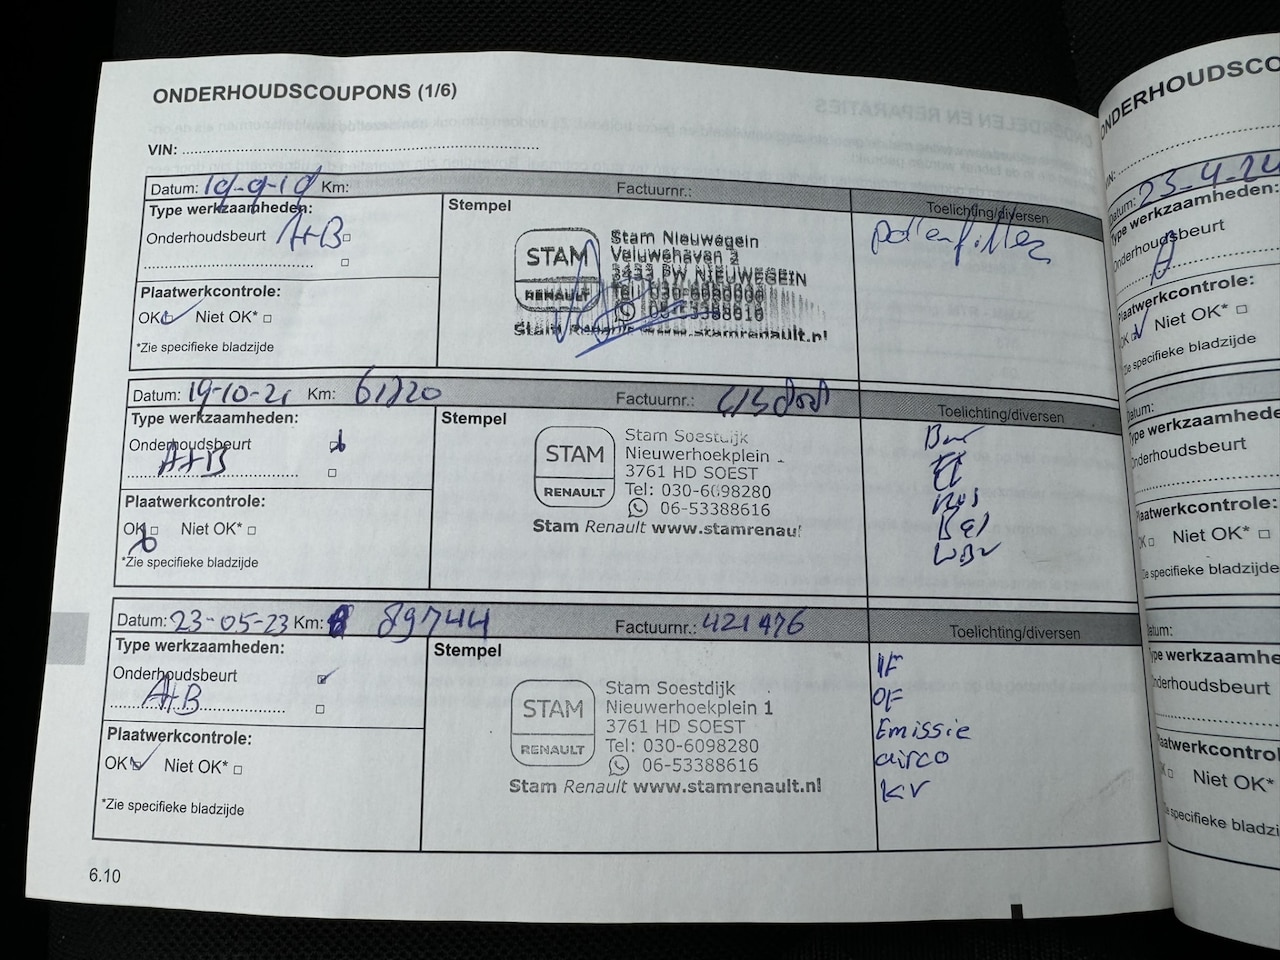 ONDERHOUDSCOUPONS (1/6)
VIN:
Datum: 19-9-19 Km: Factuurnr.:
Type werkzaamheden:
Onderhoudsbeurt A+B
Plaatwerkcontrole:
OK Niet OK*
*Zie specifieke bladzijde
Stempel
STAM
RENAULT
Stam Nieuwegein
Veluwehaven 2
3433 PW NIEUWEGEIN
Tel: 030-6080000
06-53388616
Stam Renault www.stamrenault.nl
Toelichting/diversen
pollenfilter
Datum: 19-10-21 Km: 61720 Factuurnr.:
Type werkzaamheden:
Onderhoudsbeurt
A+B
Plaatwerkcontrole:
OK Niet OK*
*Zie specifieke bladzijde
Stempel
STAM
RENAULT
Stam Soestdijk
Nieuwerhoekplein
3761 HD SOEST
Tel: 030-6098280
06-53388616
Stam Renault www.stamrenau
Toelichting/diversen
Datum: 23-05-23 Km: 89744 Factuurnr.: 421476
Type werkzaamheden:
Onderhoudsbeurt
A+B
Plaatwerkcontrole:
OK Niet OK*
*Zie specifieke bladzijde
Stempel
STAM
RENAULT
Stam Soestdijk
Nieuwerhoekplein 1
3761 HD SOEST
Tel: 030-6098280
06-53388616
Stam Renault www.stamrenault.nl
Toelichting/diversen
IF
OF
Emissie
airco
KV
6.10
ONDERHOUDSCO
VIN:
Datum: 23-4-24
Type werkzaamheden:
Onderhoudsbeurt
A
Plaatwerkcontrole:
OK Niet OK*
*Zie specifieke bladzijde
Datum:
Type werkzaamhede
Onderhoudsbeurt
Plaatwerkcontrole:
OK Niet OK*
*Zie specifieke bladzijde
Datum:
Type werkzaamhe
Onderhoudsbeurt
Plaatwerkcontrol
OK Niet OK*
*Zie specifieke bladzi